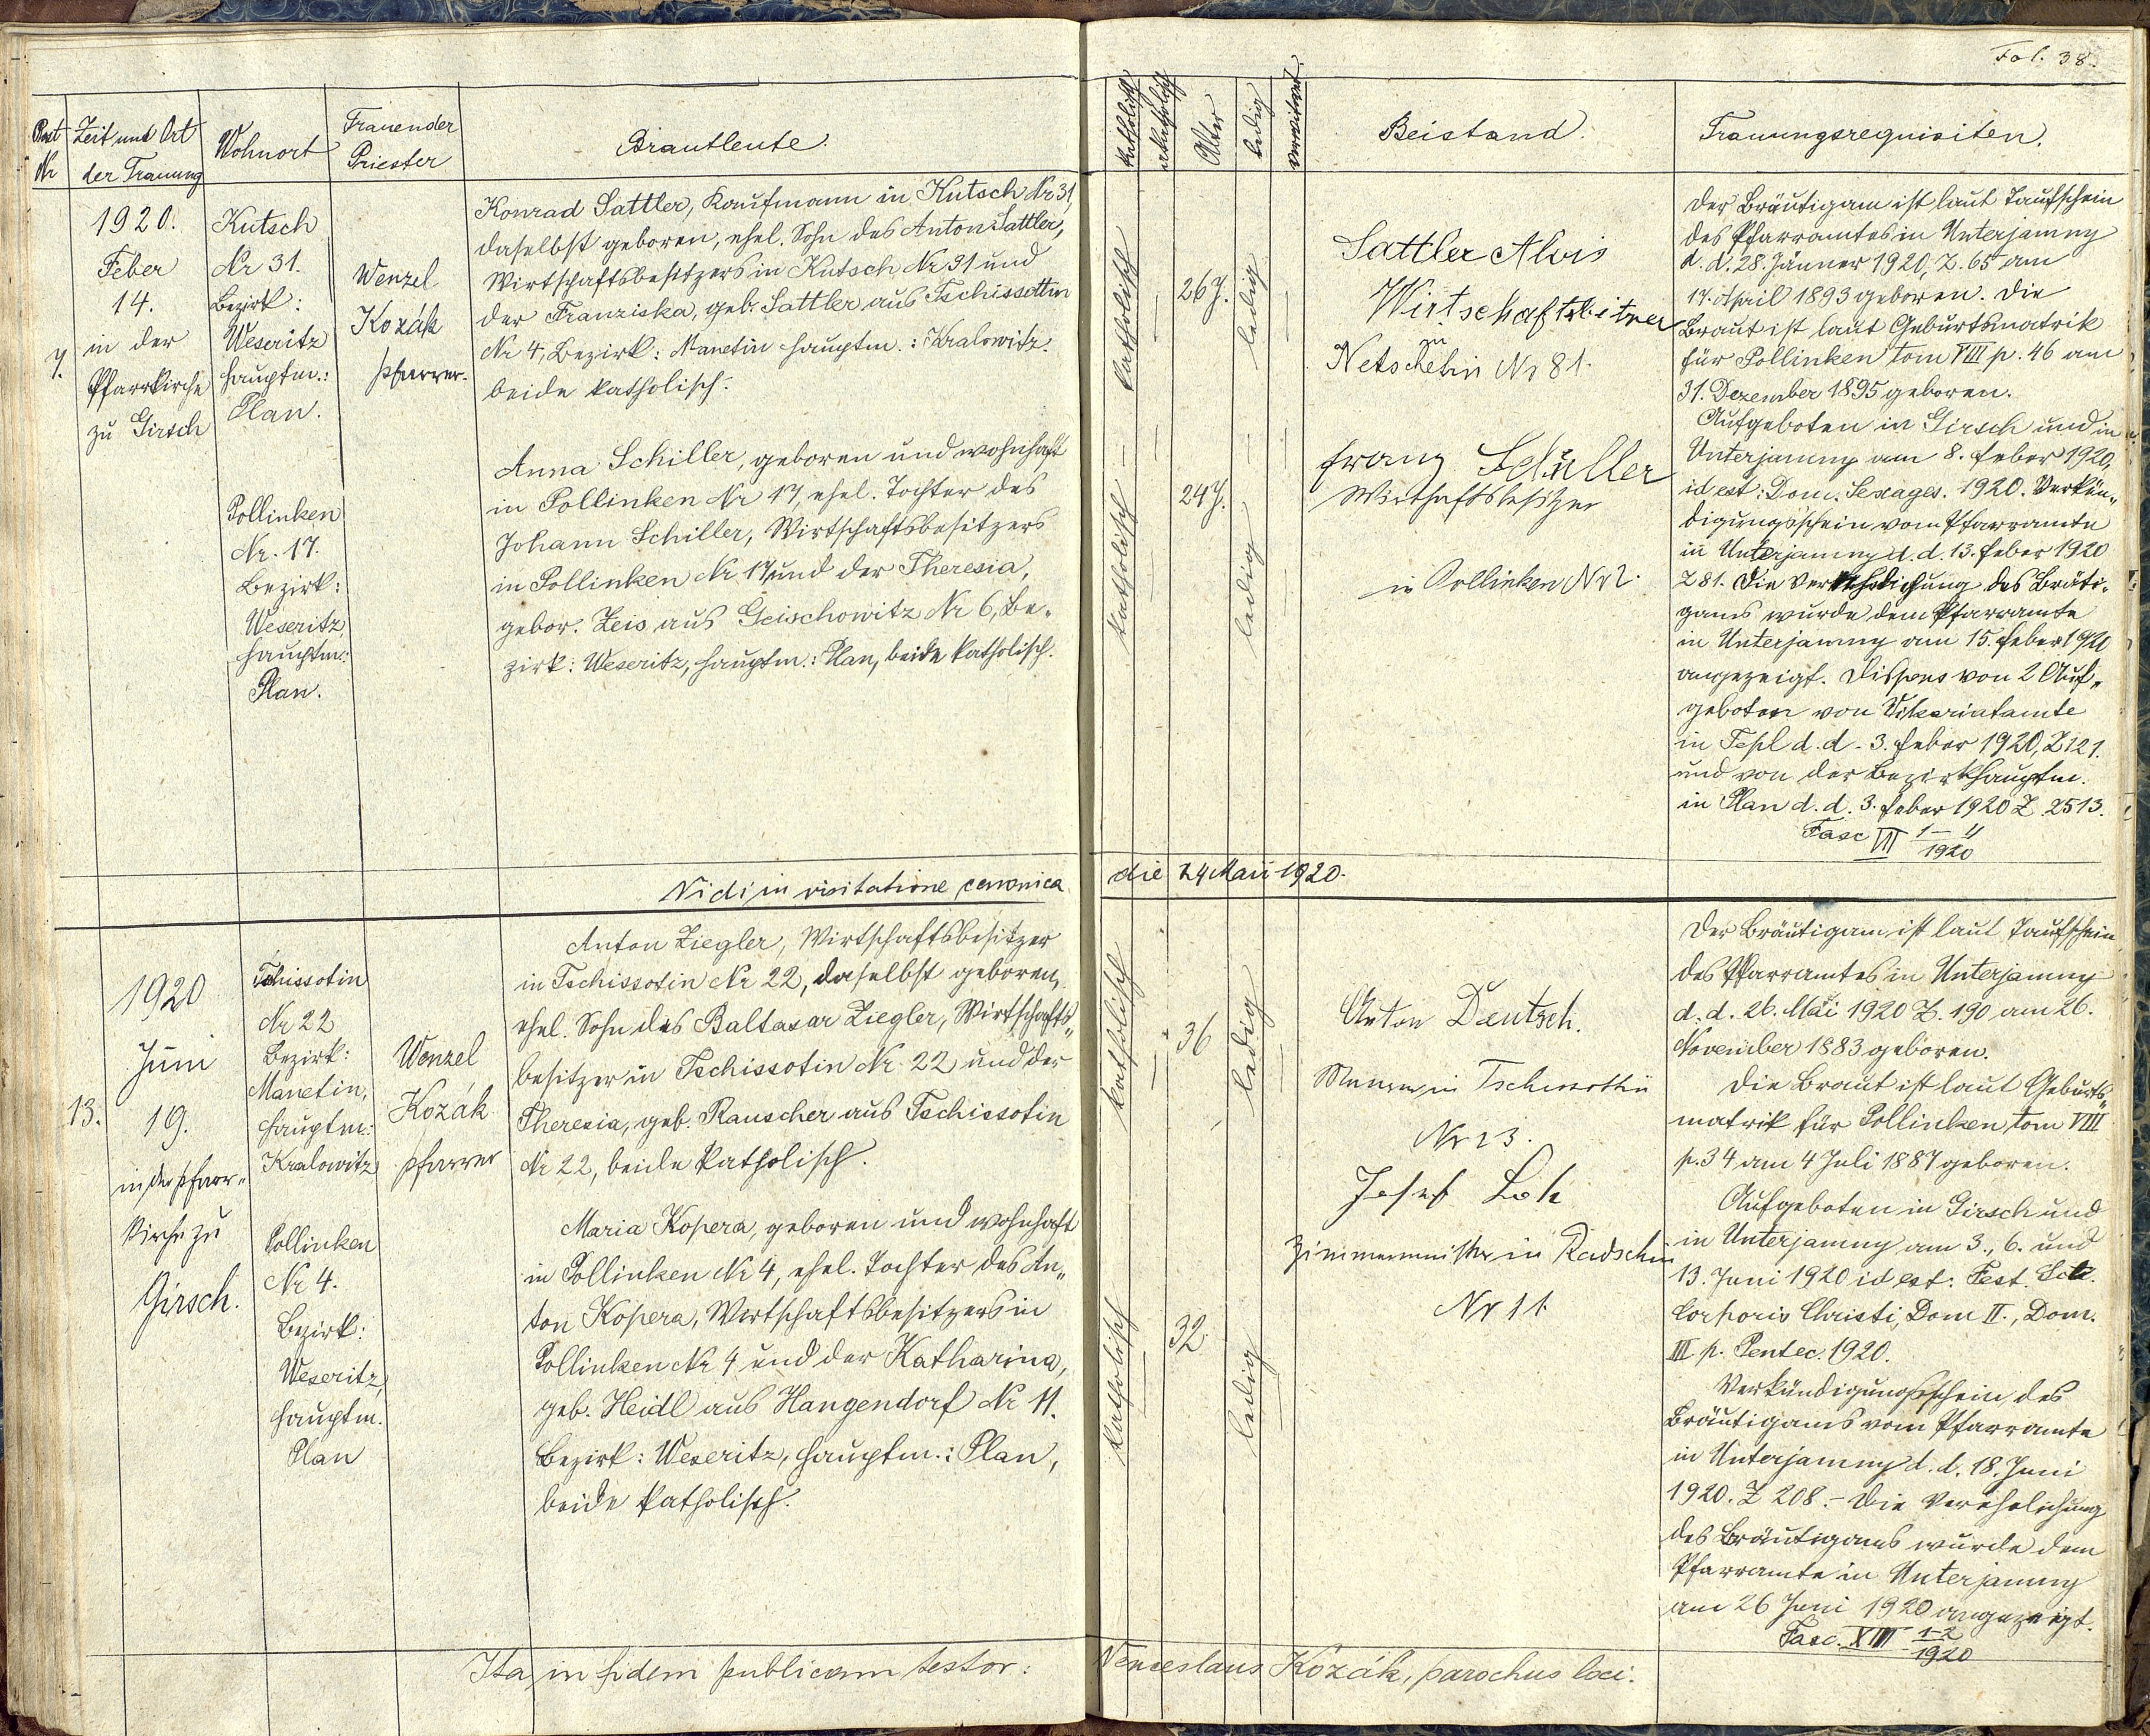 Fol. 38.
Post Nr
Zeit und Ort
der Trauung
Wohnort
Trauender
Priester
Brautleute.
katholisch
akatholisch
Alter
ledig
verwitwet
Beistand.
Trauungsrequisiten.
7.
1920.
Feber
14.
in der
Pfarrkirche
zu Girsch
Kutsch
Nr 31.
Bezirk:
Weseritz
Hauptm.:
Plan.
Wenzel
Kozák
Pfarrer.
Konrad Sattler, Kaufmann in Kutsch Nr 31,
daselbst geboren, ehel. Sohn des Anton Sattler,
Wirtschaftsbesitzers in Kutsch Nr 31 und
der Franziska, geb. Sattler aus Tschissotin
Nr 4, Bezirk: Manetin Hauptm.: Kralowitz.
beide katholisch.
Pollinken
Nr. 17.
Bezirk:
Weseritz,
Hauptm.:
Plan.
Anna Schiller, geboren und wohnhaft
in Pollinken Nr 17, ehel. Tochter des
Johann Schiller, Wirtschaftsbesitzers
in Pollinken Nr 17 und der Theresia,
gebor. Zeis aus Geischowitz Nr 6, Be-
zirk: Weseritz, Hauptm.: Plan, beide katholisch.
katholisch
26 J.
ledig
katholisch
24 J.
ledig
Sattler Alois
Wirtschaftsbesitzer
zu
Netschetin Nr 81.
Franz Schiller
Wirtschaftsbesitzer
in Pollinken Nr 2.
Der Bräutigam ist laut Taufschein
des Pfarramtes in Unterjamny
d. d. 28. Jänner 1920, Z. 65 am
17. April 1893 geboren. Die
Braut ist laut Geburtsmatrik
für Pollinken tom VIII p. 46 am
31. Dezember 1895 geboren.
Aufgeboten in Girsch und in
Unterjamny am 8. Feber 1920,
id est: Dom. Sexages. 1920. Verkün-
digungsschein vom Pfarramte
in Unterjamny d. d. 13. Feber 1920
Z 81. Die Verehelichung des Bräuti-
gams wurde dem Pfarramte
in Unterjamny am 15. Feber 1920
angezeigt. Dispens von 2 Auf-
geboten von Vikariatamte
in Tepl d. d. 3. Feber 1920, Z 121.
und von der Bezirkshauptm.
in Plan d. d. 3. Feber 1920 Z 2513.
Fasc VII 1-4/1920
Vidi in visitatione canonica die 24 Maii 1920.
13.
1920
Juni
19.
in der Pfarr-
kirche zu
Girsch.
Tschissotin
Nr 22
Bezirk:
Manetin,
Hauptm:
Kralowitz
Wenzel
Kozák
Pfarrer
Anton Ziegler, Wirtschaftsbesitzer
in Tschissotin Nr 22, daselbst geboren,
ehel. Sohn des Baltasar Ziegler, Wirtschafts-
besitzer in Tschissotin Nr 22 und der
Theresia, geb. Rauscher aus Tschissotin
Nr 22, beide katholisch.
Pollinken
Nr 4.
Bezirk:
Weseritz,
Hauptm.
Plan
Maria Kopera, geboren und wohnhaft
in Pollinken Nr 4, ehel. Tochter des An-
ton Kopera, Wirtschaftsbesitzers in
Pollinken Nr 4 und der Katharina,
geb. Heidl aus Hangendorf Nr 11.
Bezirk: Weseritz, Hauptm.: Plan,
beide katholisch.
katholisch
36
ledig
katholisch
32
ledig
Anton Deutsch.
in Tschissothin
Nr 23.
Josef
Zimmermeister in Radschin
Nr 11.
Der Bräutigam ist laut Taufschein
des Pfarramtes in Unterjamny
d. d. 26. Mai 1920 Z. 190 am 26.
November 1883 geboren.
Die Braut ist laut Geburts-
matrik für Pollinken tom VIII
p. 34 am 4 Juli 1887 geboren.
Aufgeboten in Girsch und
in Unterjamny am 3., 6. und
13. Juni 1920 id est: Fest.
Corporis Christi, Dom II., Dom.
III p. Pentec. 1920.
Verkündigungsschein des
Bräutigams vom Pfarramte
in Unterjamny d. d. 18. Juni
1920. Z 208. - Die Verehelichung
des Bräutigams wurde dem
Pfarramte in Unterjamny
am 26 Juni 1920 angezeigt.
Fasc. XIII 1-2/1920
Ita in fidem publicam testor: Venceslaus Kozák, parochus loci.